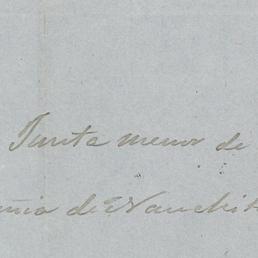 Junta menor de
de Nauchit